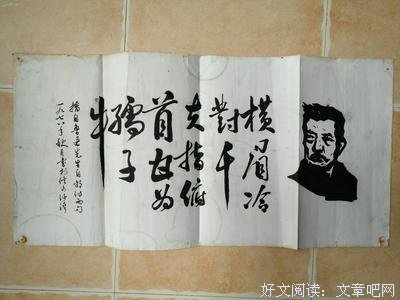 横眉冷
對千
夫指俯
首甘为
孺子
牛
摘自鲁迅先生自嘲诗两句
一九七八年秋月書於
好文阅读：文章吧网